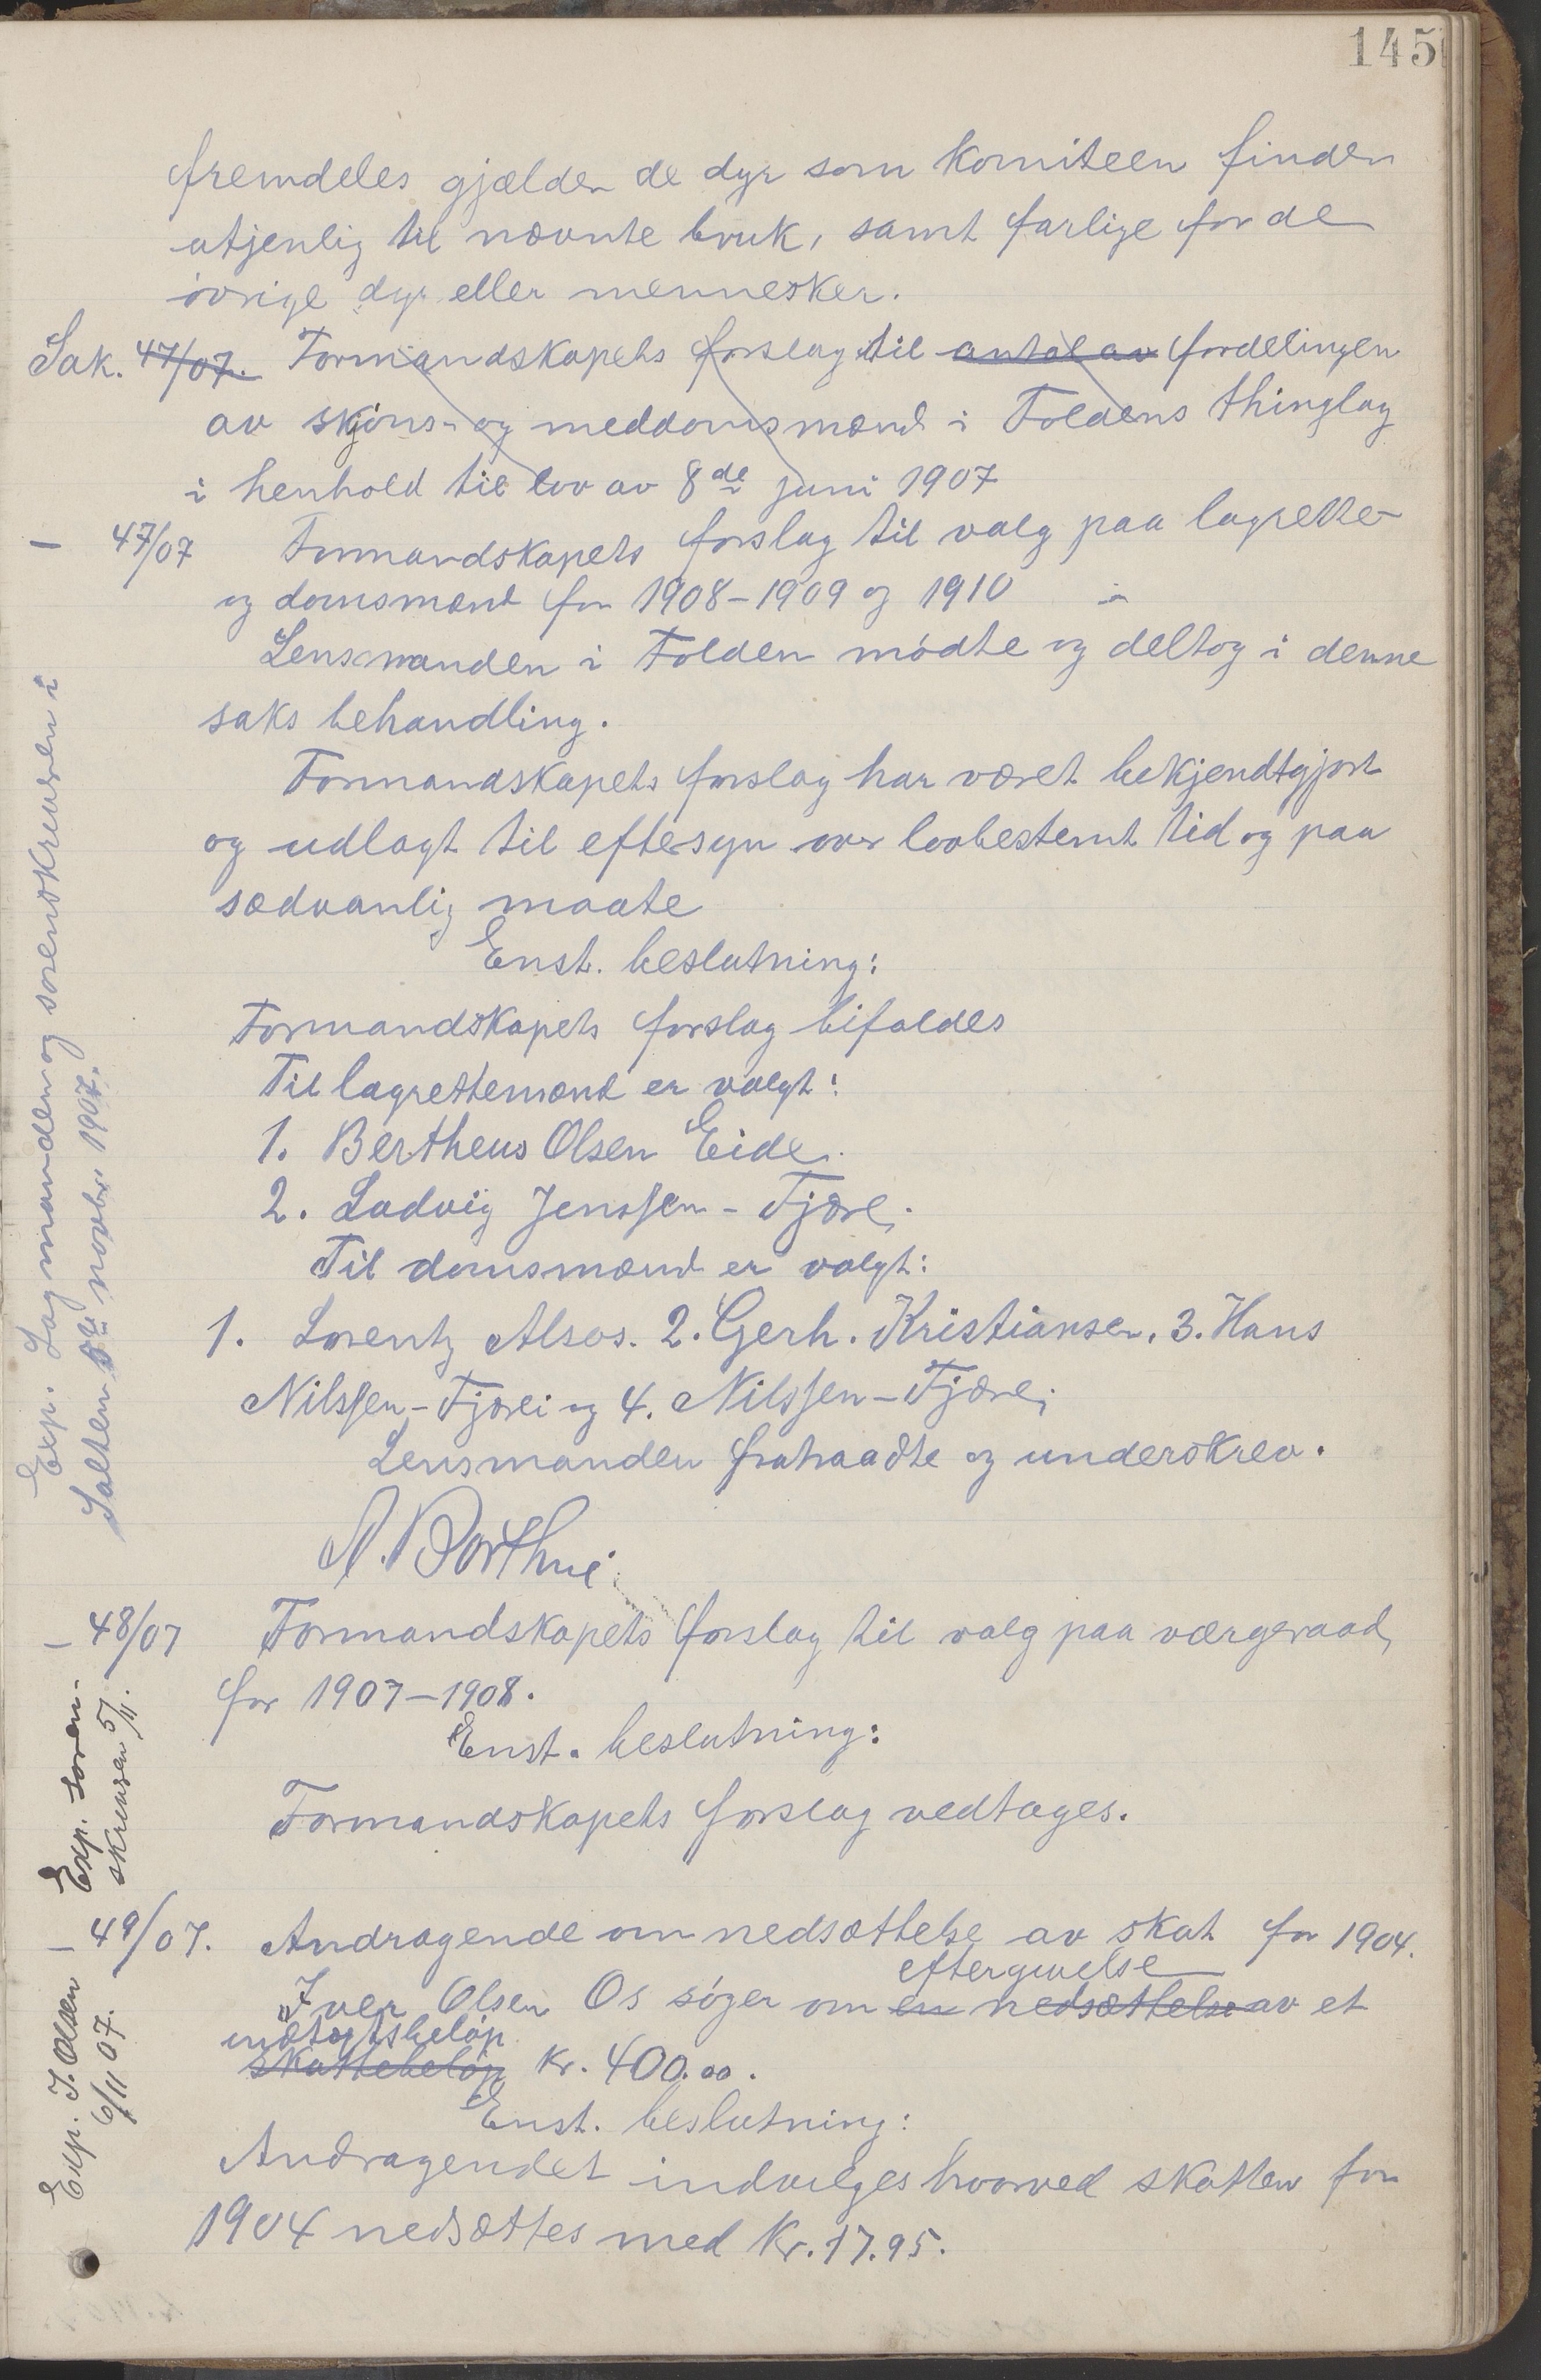 145
fremdeles gjælder de dyr som komiteen finder
utjenlig til nævnte bruk, samt farlige for de
øvrige dyr eller mennesker.
Sak. 47/07. Formandskapets forslag til antal av fordelingen
av skjøns- og meddomsmænd i Foldens thinglag
i henhold til lov av 8de juni 1907
- 47/07 Formandskapets forslag til valg paa lagrette-
og domsmænd for 1908-1909 og 1910
Lensmanden i Folden mødte og deltog i denne
saks behandling.
Formandskapets forslag har været bekjendtgjort
og udlagt til eftersyn over lovbestemt tid og paa
sædvanlig maate
Enst. beslutning:
Formandskapets forslag bifaldes
Til lagrettemænd er valgt:
1. Bertheus Olsen Eide.
2. Ludvig Jenssen - Fjære.
Til domsmænd er valgt:
1. Lorentz Alsos. 2. Gerh. Kristiansen. 3. Hans
Nilssen - Fjærei og 4. Nilssen - Fjære,
Lensmanden fratraadte og underskrev.
Exp. Lagmanden og sorenskriveren i
Salten novbr 1907.
- 48/07 Formandskapets forslag til valg paa værgeraad,
for 1907-1908.
Enst. beslutning:
Formandskapets forslag vedtages.
Exp. soren-
skriveren 5/11.
- 49/07. Andragende om nedsættelse av skat for 1904.
eftergivelse
Iver Olsen Os søger om en nedsættelse av et
indtægtsbeløp
skattebeløp kr. 400.00.
Enst. beslutning:
Andragendet indvilges hvorved skatten for
1904 nedsættes med kr. 17.95.
Exp. I. Olsen
6/11 07.